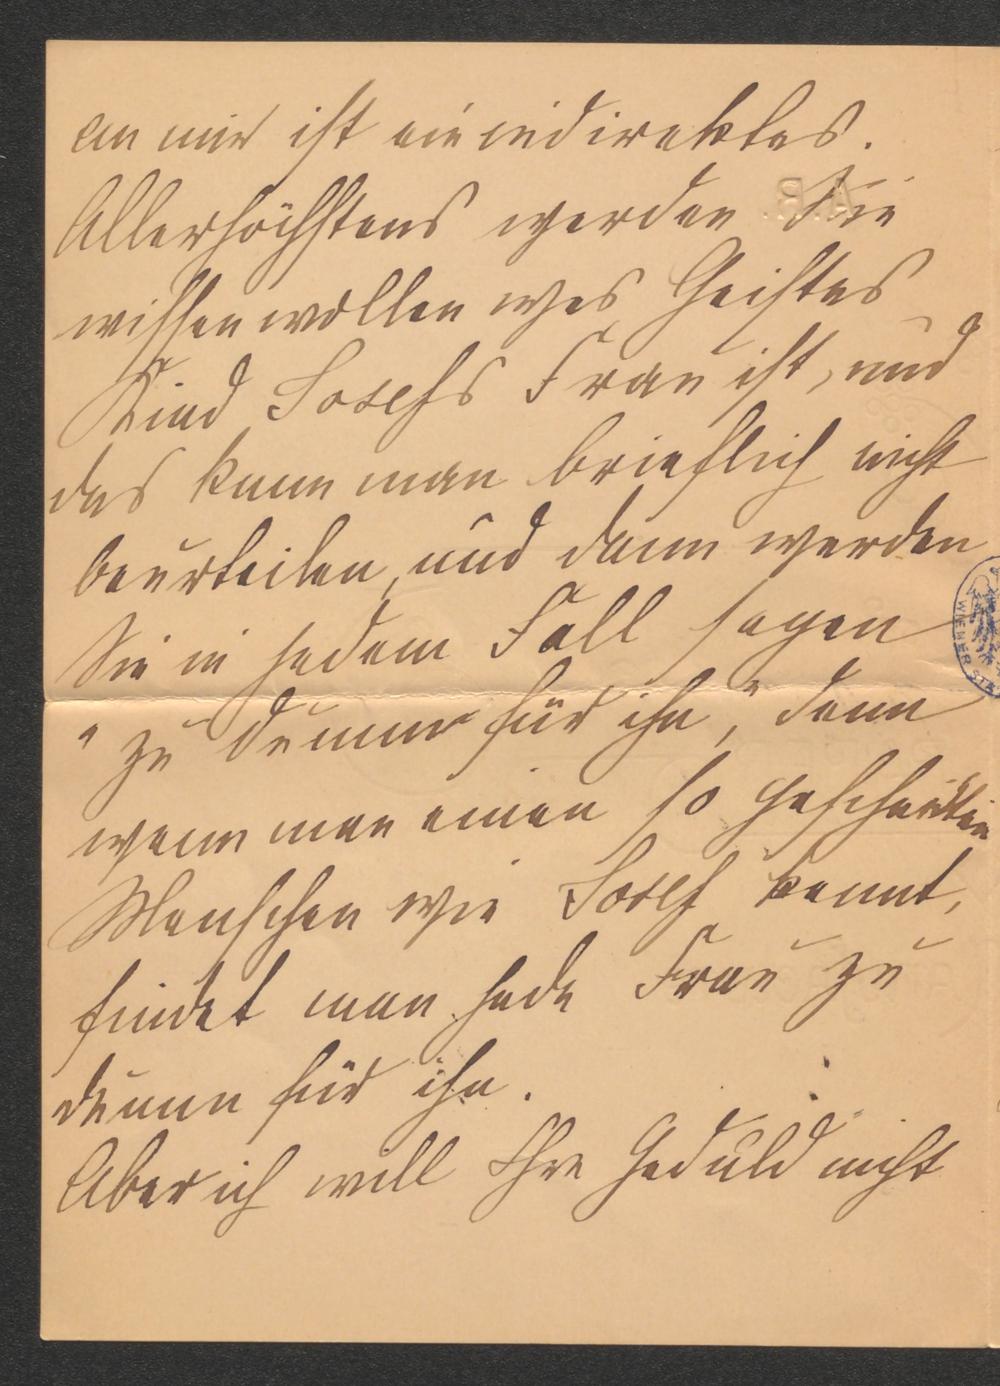 an mir ist ein indirektes.
Allerhöchstens werden Sie
wissen wollen wes Geistes
Kind Josefs Frau ist, und
das kann man brieflich nicht
beurteilen, und dann werden
Sie in jedem Fall sagen
"zu dumm für ihn", denn
wenn man einen so gescheidten
Menschen wie Josef kennt,
findet man jede Frau zu
dumm für ihn.
Aber ich will Ihre Geduld nicht
A.B.
WIENER